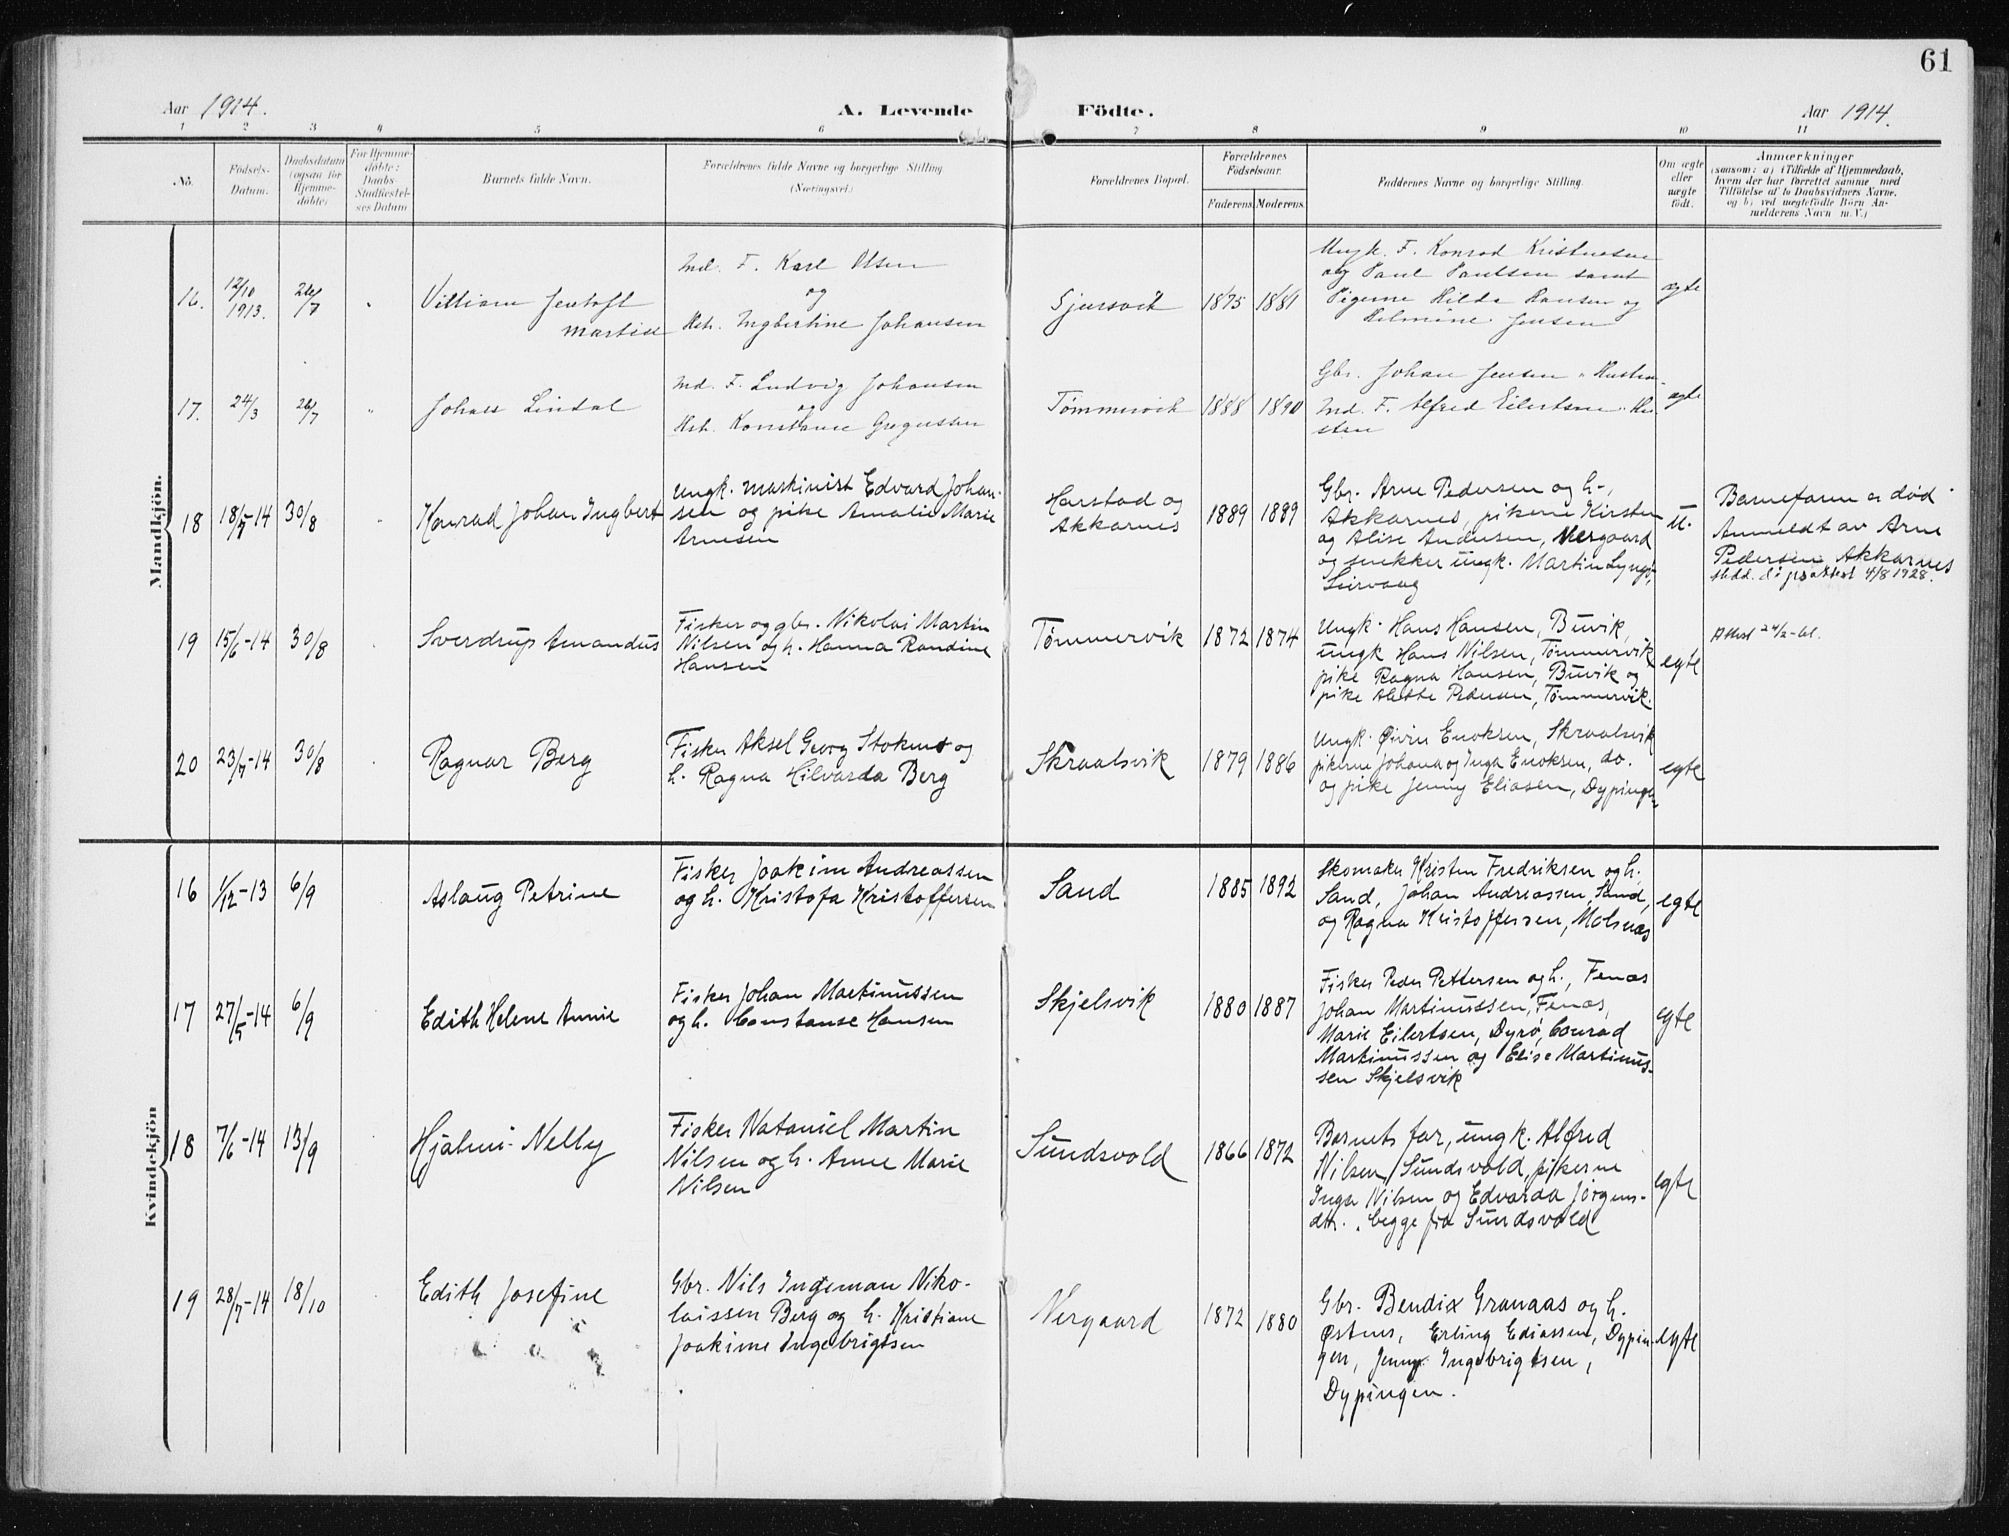 61
Aar 1914.
A. Levende Födte.
Aar 1914.
1 2 3 4 5 6 7 8 9 10 11
No.
Födsels-
Datum.
Daabsdatum
(ogsaa for
Hjemme-
döbte)
For Hjemme-
döbte:
Daabs-
Stadfæstel-
ses Datum
Barnets fulde Navn.
Forældrenes fulde Navne og borgerlige Stilling
(Næringsvei.)
Forældrenes Bopæl.
Forældrenes
Födselsaar.
Faderens. Moderens.
Faddernes Navne og borgerlige Stilling.
Om ægte
eller
uægte
født.
Anmærkninger
(saasom: a) i Tilfælde af Hjemmedaab,
hvem der har forrettet samme med
Tilföielse af to Daabsvidners Navne.
og b) ved uægtefödte Börn An-
melderens Navn m. V.)
Mandkjön.
16.
12/10
1913.
26/7
Villiam Jentoft
Ind. F. Karl Olsen
og
Hst. Ingbertine Johansen
1875 1881
Ungk. F. Konrad
og Paul Paulsen samt
Pigerne Hilda Hansen og
Helmine Jensen
17.
24/3
26/7
Johan Lindal
Ind. F. Ludvig Johansen
og
Tømmervik
1888 1890
Gbr. Johan Jensen
Ind. F. Alfred Eilertsen
18
18/7-14
30/8
Konrad Johan Ingbert
ungk. maskinist Edvard Johan-
sen og pike Amalie Marie
Arnesen
Harstad og
Akkarnes
1889 1889
Gbr. Arne Pedersen og h-,
Akkarnes, pikerne Kirsten
og Alise Andersen, Nergaard
og snekker ungk. Martin
Leirvaag
U.
Barnefaren er død
Anmeldt av Arne
Pedersen Akkarnes
4/8 1928.
19
15/6-14
30/8
Sverdrup Amandus
Fisker og gbr. Nikolai Martin
Nilsen og h. Hanna Randine
Hansen
Tømmervik
1872 1874
Ungk. Hans Hansen, Buvik,
ungk Hans Nilsen, Tømmervik,
pike Ragna Hansen, Buvik og
pike Alette Pedersen, Tømmervik.
egte
Attest 24/2-61.
20
23/7-14
30/8
Ragnar Berg
Fisker Aksel Georg og
h. Ragna Hilvarda Berg
Skraalsvik
1879 1886
Ungk. Øivin Enoksen, Skraalsvik
pikerne Johanna og Inga Enoksen, do.
og pike Jenny Eliasen, Dypingen
egte
Kvindekjön
16
1/12-13
6/9
Aslaug Petrine
Fisker Joakim Andreassen
og h. Kristofa Kristoffersen
Sand
1885 1892
Skomaker Kristen Fredriksen og h.
Sand, Johan Andreassen, Sand,
og Ragna Kristoffersen, Molsnæs
egte
17
27/5-14
6/9
Edith Helene Annie
Fisker Johan Martinussen
og h. Constanse Hansen
Skjelsvik
1880 1887
Fisker Peder Pettersen og h., Fenæs
Johan Martinussen, Fenæs,
Marie Eilertsen, Dyrø, Conrad
Martinussen og Elise Martinus-
sen Skjelsvik
egte
18
7/6-14
13/9
Hjalmi-Nelly
Fisker Nataniel Martin
Nilsen og h. Anne Marie
Nilsen
Sundsvold
1866 1872
Barnets far, ungk. Alfred
Nilsen, Sundsvold, pikerne
Inga Nilsen og Edvarda Jørgens-
dtr., begge fra Sundsvold
egte
19
28/7-14
18/10
Edith Josefine
Gbr. Nils Ingeman Niko-
laissen Berg og h. Kristiane
Joakime Ingebrigtsen
Nergaard
1872 1880
Gbr. Bendix Granaas og h.
Østnes, Erling Ediassen, Dypin-
gen, Jenny Ingebrigtsen,
Dypingen.
egte